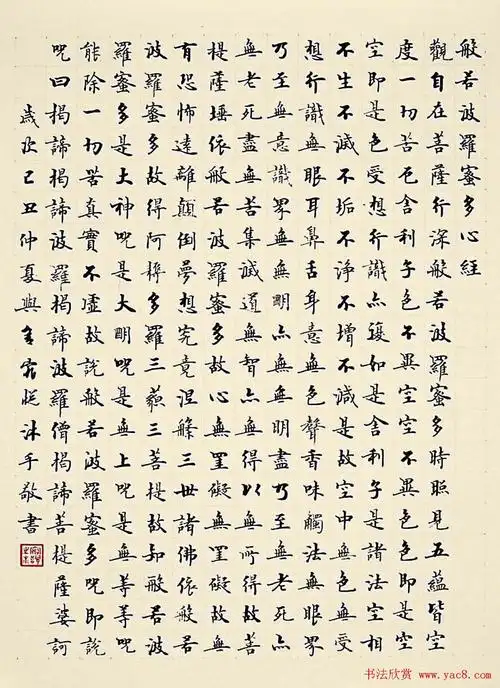 般若波羅蜜多心經
觀自在菩薩行深般若波羅蜜多時照見五蘊皆空
度一切苦厄舍利子色不異空空不異色色即是空
空即是色受想行識亦復如是舍利子是諸法空相
不生不滅不垢不淨不增不減是故空中無色無受
想行識無眼耳鼻舌身意無色聲香味觸法無眼界
乃至無意識界無無明亦無無明盡乃至無老死亦
無老死盡無苦集滅道無智亦無得以無所得故菩
提薩埵依般若波羅蜜多故心無罣礙無罣礙故無
有恐怖遠離顛倒夢想究竟涅槃三世諸佛依般若
波羅蜜多故得阿耨多羅三藐三菩提故知般若波
羅蜜多是大神咒是大明咒是無上咒是無等等咒
能除一切苦真實不虛故說般若波羅蜜多咒即說
咒曰揭諦揭諦波羅揭諦波羅僧揭諦菩提薩婆訶
歲次己丑仲夏沐手敬書
书法欣赏
www.yac8.com